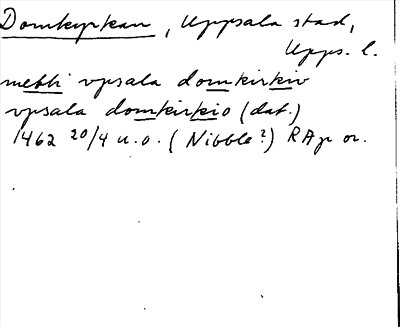 Domkyrkan, Uppsala stad,
Upps. l.
medh vpsala domkirkiv
vpsala domkirkio (dat.)
1462 20/4 u.o. (Nibble?) RAp or.